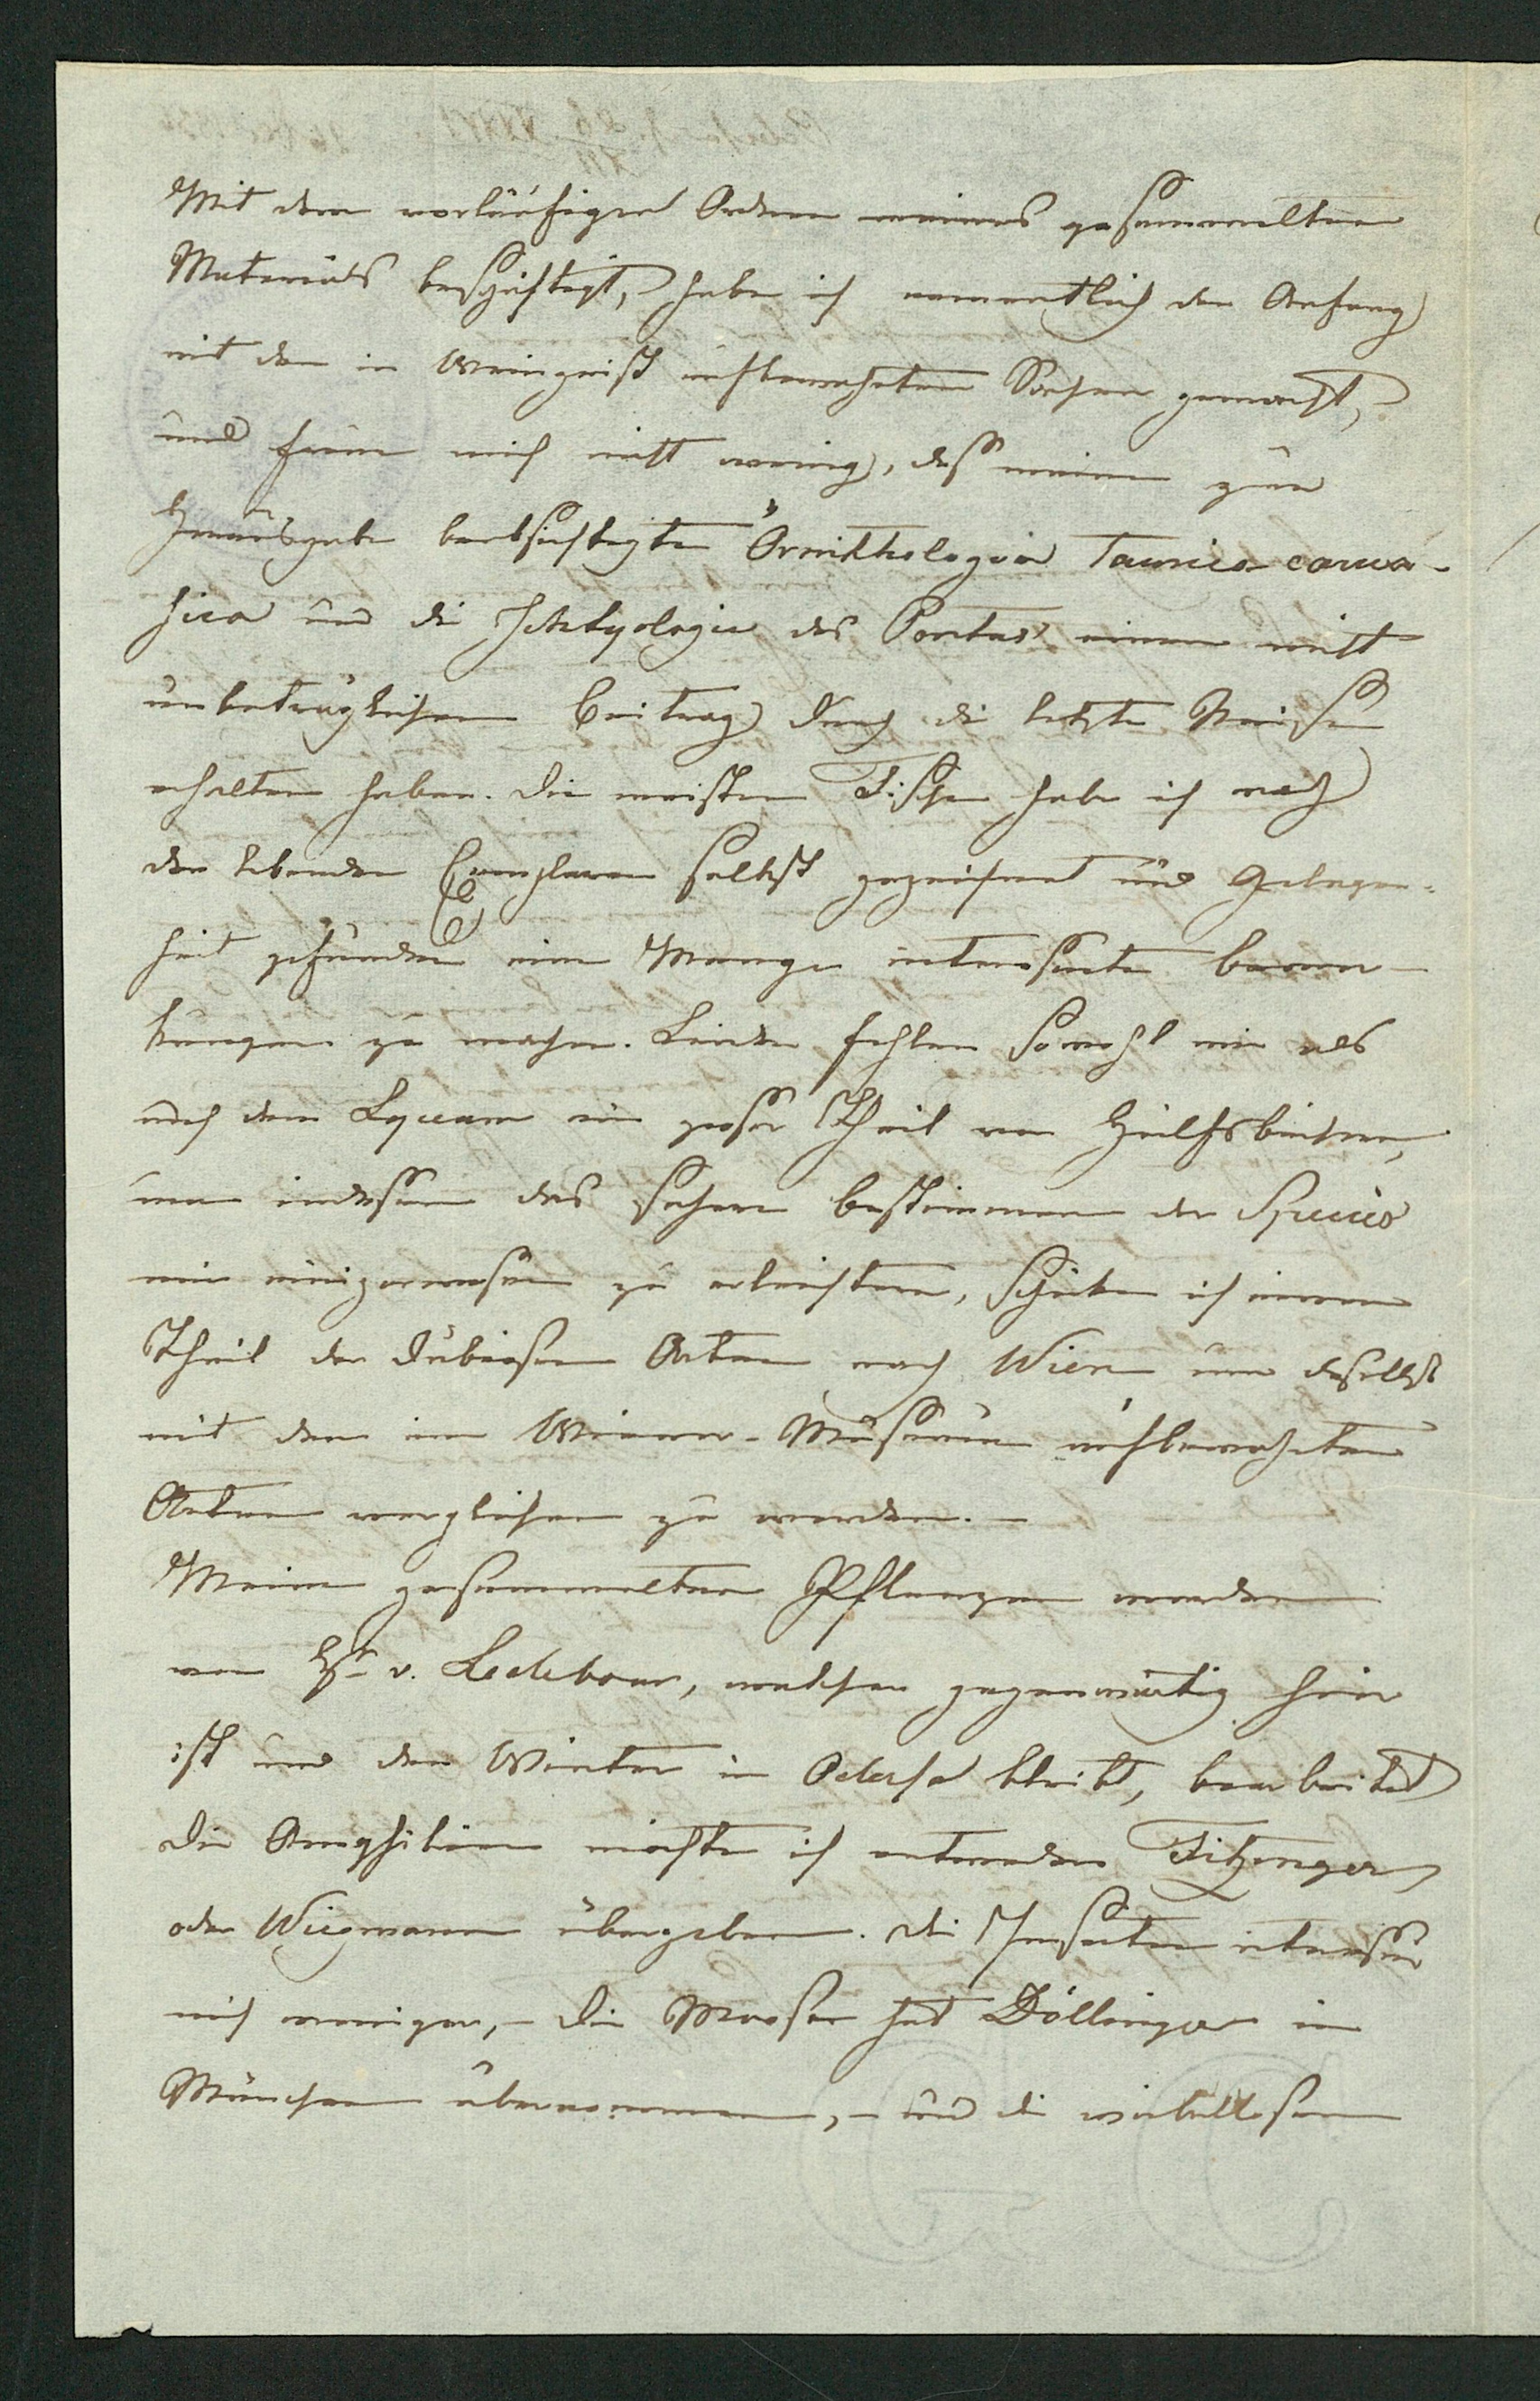 Mit dem vorläufigen Ordnen meines gesammelten
Materials beschäftigt, habe ich namentlich den Anfang
mit den in Weingeist aufbewahrten Sachen gemacht,
und freue mich nicht wenig, daß meine zur
Herausgabe beabsichtigte Ornithologia Taurico cauca-
sica und die Ichtyologie des Pontus einen nicht
unbeträglichen Beitrag durch die letzte Reise
erhalten haben. Die meisten Fische habe ich nach
den lebenden Exemplaren selbst gezeichnet und Gelegen-
heit gefunden eine Menge interessante Bemer-
kungen zu machen. Leider fehlen sowohl mir als
auch dem Lyceum ein großer Theil von Hülfsbüchern,
um indessen das sichere bestimmen der Species
mir einigermasen zu erleichtern, schicke ich einen
Theil der dubiosen Arten nach Wien um daselbst
mit den im Wiener-Museum aufbewahrten
Arten verglichen zu werden. –
Meine gesammelten Pflanzen werden
von Hr v. Ledebour, welcher gegenwärtig hier
ist und den Winter in Odessa bleibt, bearbeitet
die Amphibien möchte ich entweder Fitzinger
oder Wiegmann übergeben. Die Insecten interessiren
mich weniger, – die Moose hat Döllinger in
München übernommen, – und die wirbellosen